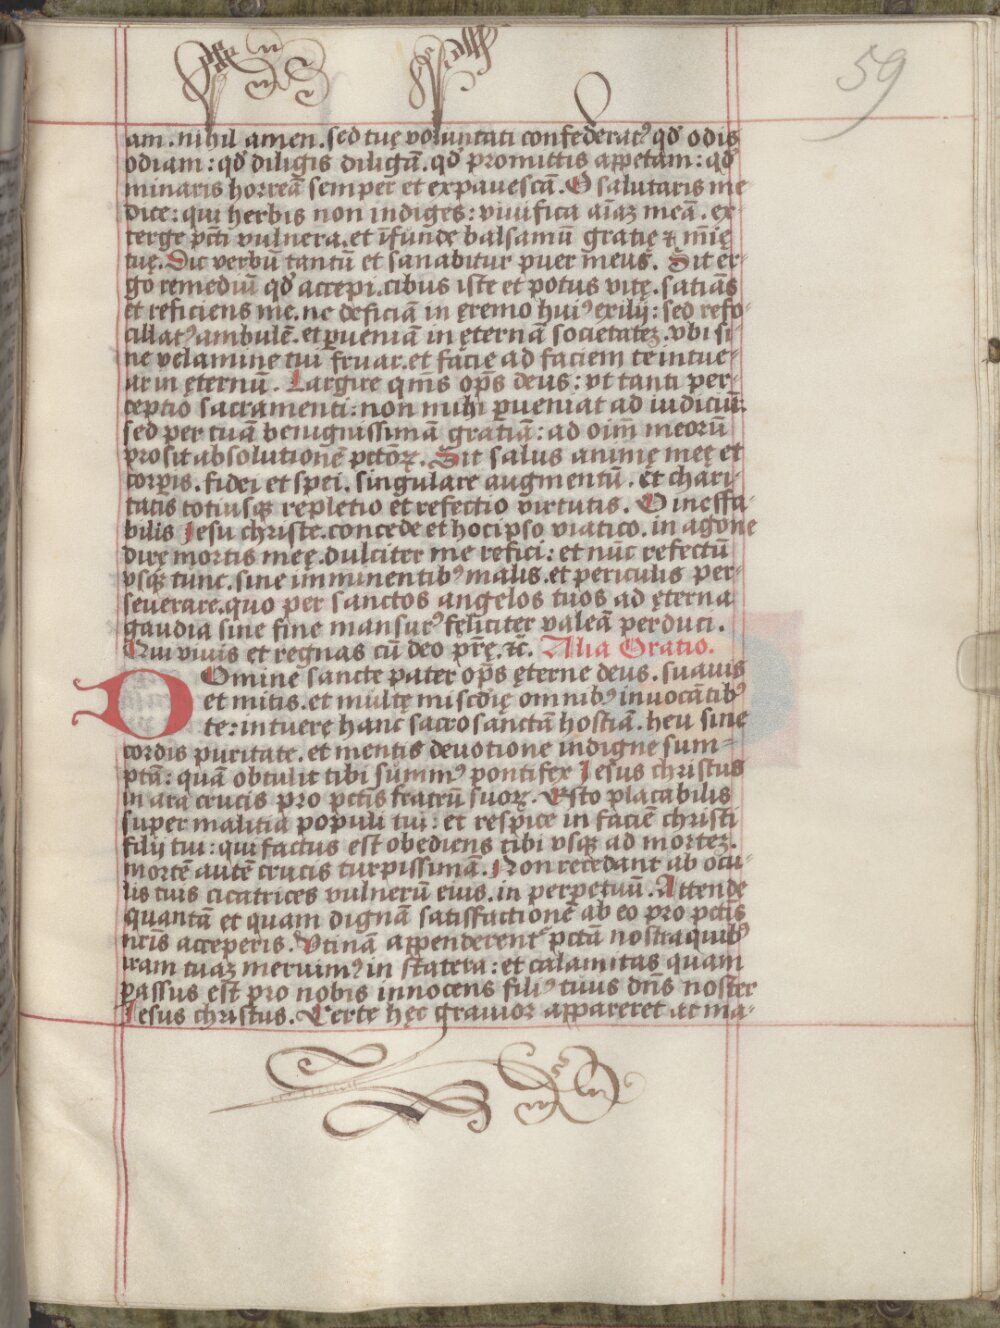 59
am. nihil amen. sed tuę voluntati confederatꝰ qd̕ odis
odiam: qd̕ diligis diligā. qd̕ promittis appetam: qd̕
minaris horreā semper et expauescā. O salutaris me-
dice: qui herbis non indiges: viuifica aīaꝫ meā. ex-
terge pcti vulnera. et īfunde balsamū gratię ⁊ mīę
tuę. Dic verbū tantū et sanabitur puer meus. Sit er-
go remediū qd̕ accepi. cibus iste et potus vitę. satiās
et reficiens me. ne deficiā in ęremo huiꝰ exilij: sed refo-
cillatꝰ ambulē. et ꝑueniā in ęternā societateꝫ. vbi si-
ne velamine tui fruar. et facie ad faciem te intue-
ar in ęternū. Largire qm̄s op̄s deus: vt tanti per-
ceptio sacramenti: non mihi ꝑueniat ad iudiciū:
sed per tuā benignissimā gratiā: ad oim̄ meorū
prosit absolutionē pctōꝝ. Sit salus animę meę et
corꝑis. fidei et spei. singulare augmentū. Et chari-
tatis totiusqꝫ repletio et refectio virtutis. O ineffa-
bilis Iesu christe. concede et hoc ipso viatico. in agone
dirę mortis meę. dulciter me refici: et nūc refectū
vsqꝫ tunc. sine imminentibꝰ malis. et periculis per-
seuerare. quo per sanctos angelos tuos ad ęterna
gaudia sine fine mansurꝰ fęliciter valeā perduci.
Qui viuis et regnas cū deo pr̄ę. ⁊c̄. Alia Oratio.
DOmine sancte pater op̄s ęterne deus. suauis
et mitis. et multę miscdię omnibꝰ inuocātibꝰ
te: intuere hanc sacrosanctā hostiā. heu sine
cordis puritate. et mentis deuotione indigne sum-
ptā: quā obtulit tibi summꝰ pontifex Iesus christus
in ara crucis pro pctis fratrū suoꝝ. Esto placabilis
super malitia populi tui: et respice in faciē christi
filij tui: qui factus est obediens tibi vsqꝫ ad morteꝫ.
mortē autē crucis turpissimā. Non recedant ab ocu-
lis tuis cicatrices vulnerū eius. in perpetuū. Attende
quantā et quam dignā satisfactionē ab eo pro pctis
nr̄is acceperis. Vtinā appenderent᷑ pctā nostra quibꝰ
iram tuaꝫ meruimꝰ in statera: et calamitas quam
passus est pro nobis innocens filiꝰ tuus dn̄s noster
Iesus christus. Certe hęc grauior appareret ac ma-